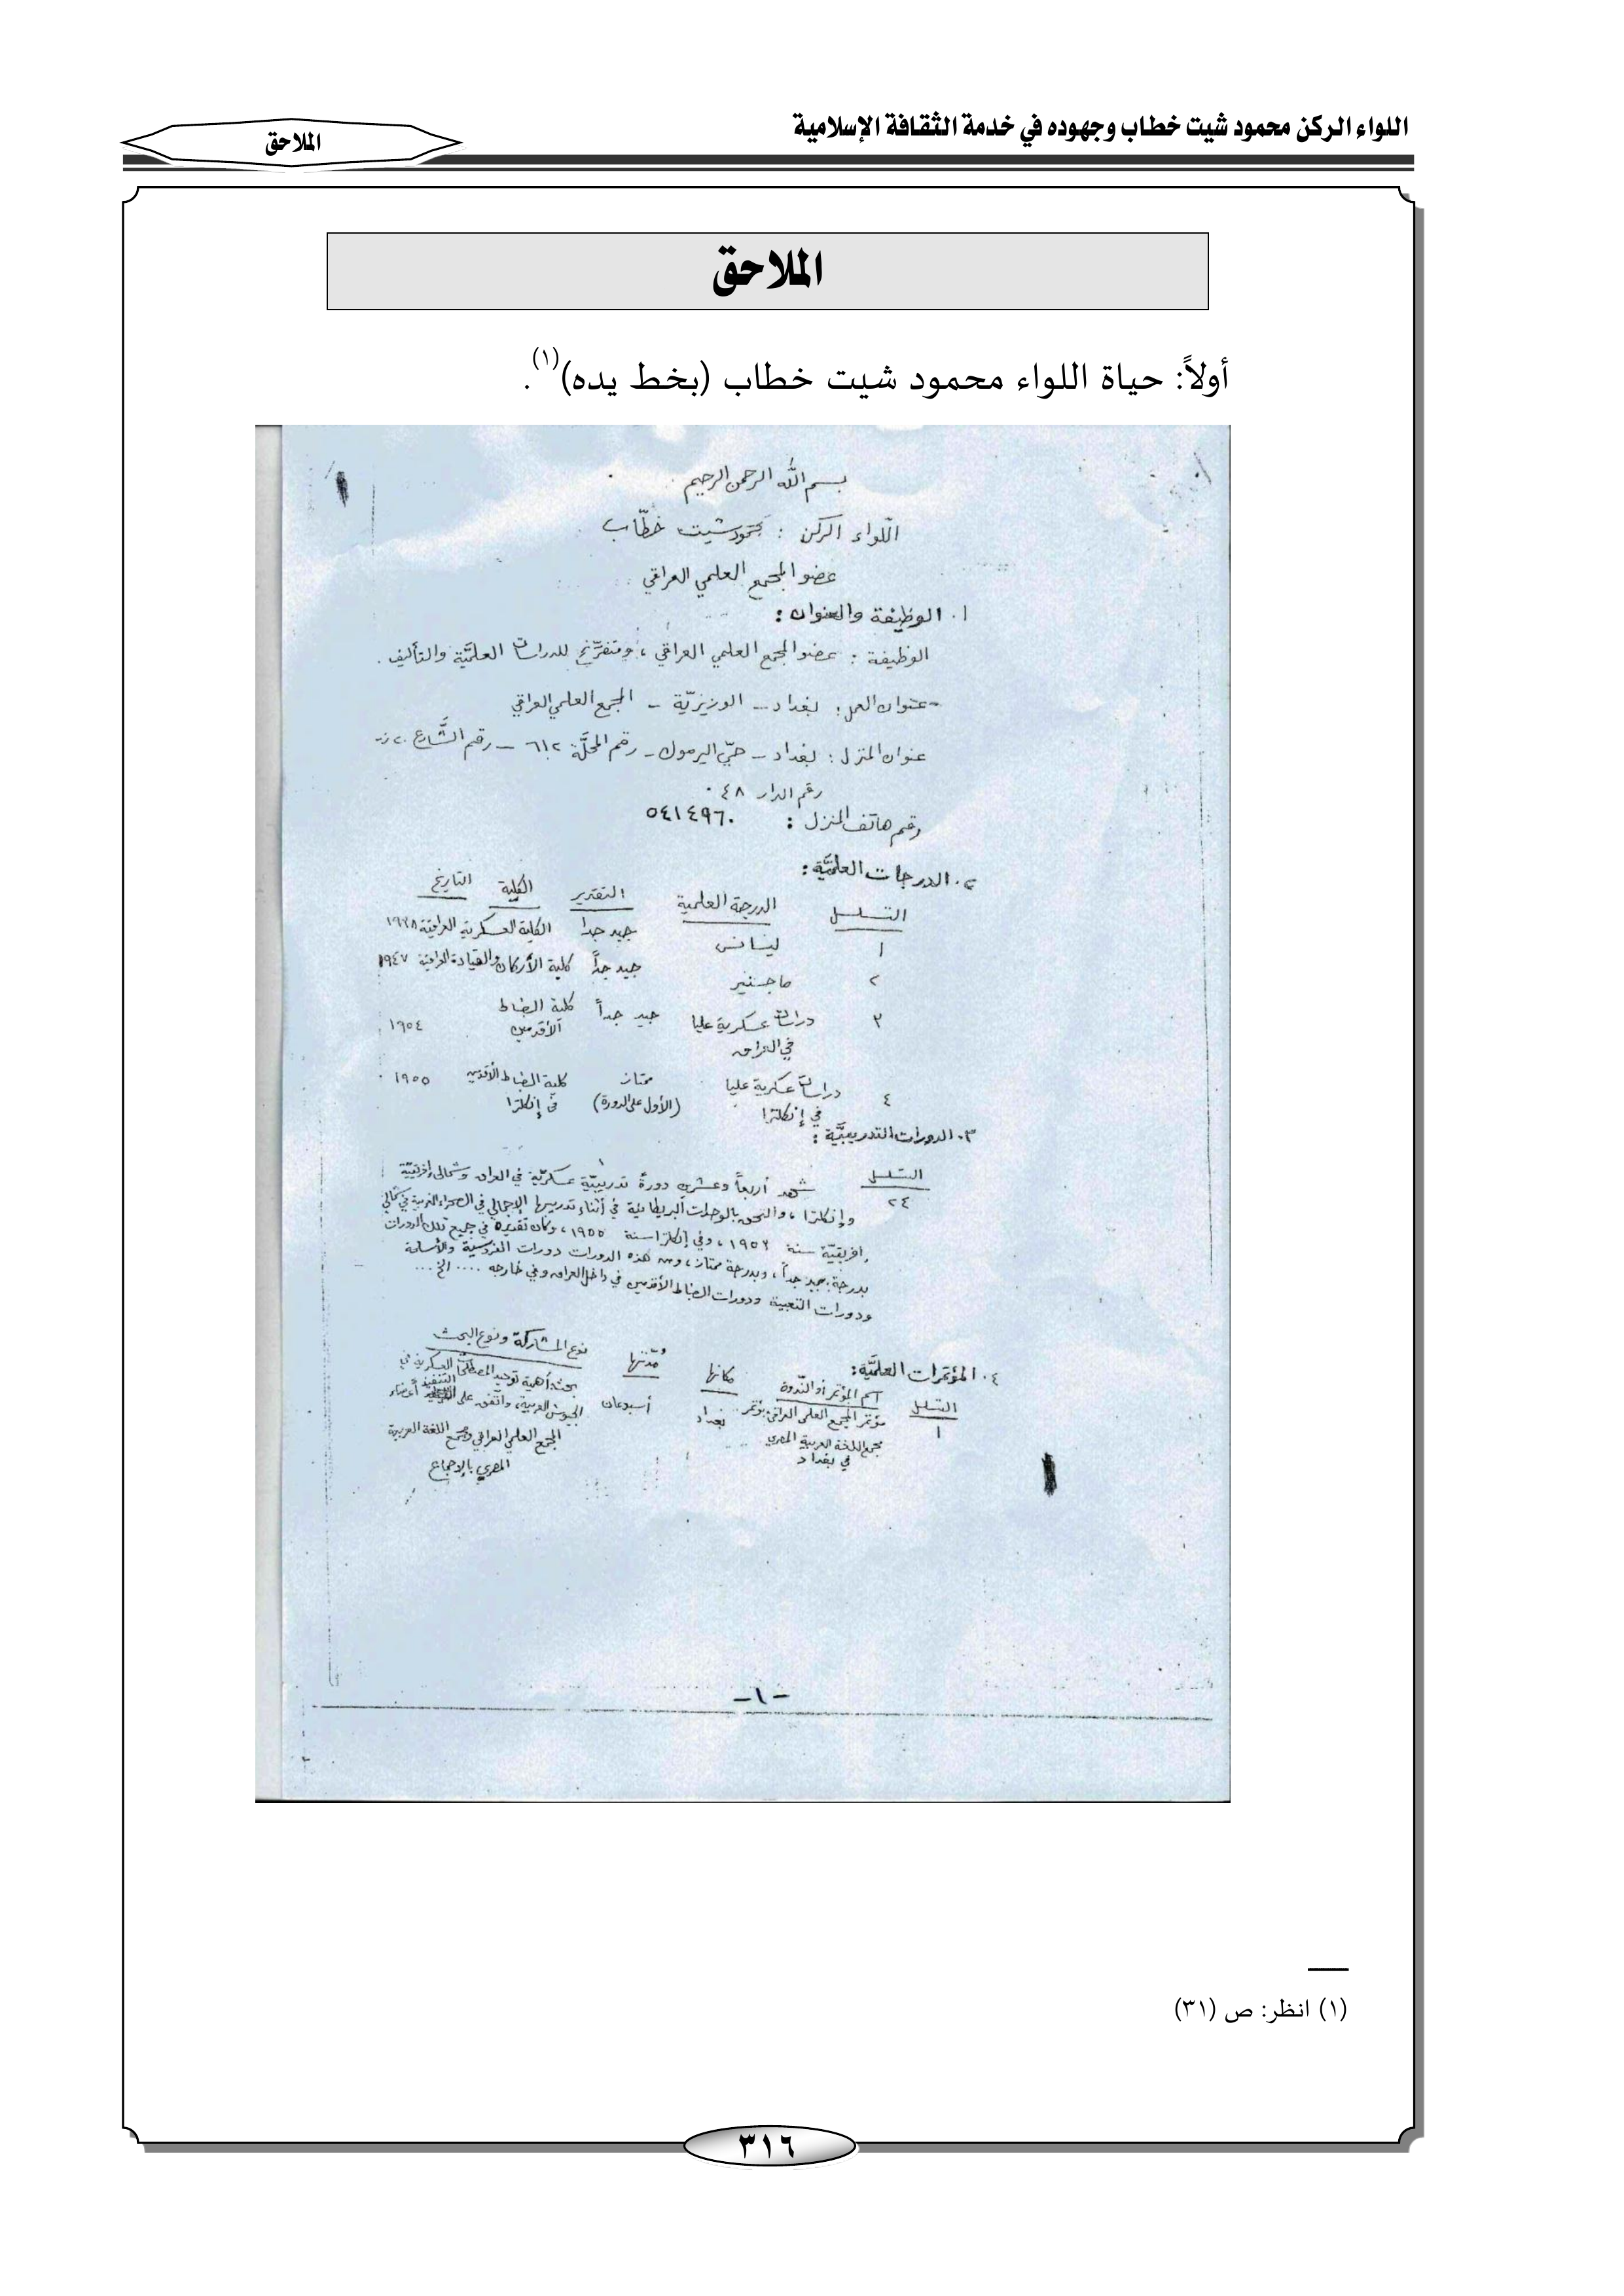 اللواء الركن محمود شيت خطاب وجهوده في خدمة الثقافة الإسلامية
الملاحق
الملاحق
أولاً: حياة اللواء محمود شيت خطاب (بخط يده)(١).
بسم الله الرحمن الرحيم
اللّواء الركن : محمود شيت خطّاب
عضو المجمع العلمي العراقي
١. الوظيفة والعنوان :
الوظيفة : عضو المجمع العلمي العراقي ، ومتفرّغ للدراسات العلميَّة والتأليف .
- عنوان العمل : بغداد - الوزيريّة - المجمع العلمي العراقي
عنوان المنزل : بغداد - حيّ اليرموك - رقم المحلَّة ٦١٢ - رقم الشَّارع ٢٠
رقم الدار ٤٨ .
رقم هاتف المنزل : ٥٤١٤٩٦٠
٢. الدرجات العلميَّة :
التسلسل الدرجة العلمية التقدير الكلية التاريخ
١ ليسانس جيد جدا الكلية العسكرية العراقية ١٩٣٨
٢ ماجستير جيد جداً كلية الأركان والقيادة العراقية ١٩٤٧
٣ دراسات عسكرية عليا جيد جداً كلية الضباط ١٩٥٤
في العراق الأقدمين
٤ دراسات عسكرية عليا ممتاز كلية الضباط الأقدمين ١٩٥٥
في إنكلترا (الأول على الدورة) في إنكلترا
٣. الدورات التدريبيَّة :
التسلسل
٢٤ شهد أربعاً وعشرين دورةً تدريبيّة عسكريّة في العراق وشمالي إفريقيّة
وإنكلترا ، والتحق بالوحدات البريطانية في أثناء تدريبها الإجمالي في الصحراء الغربية في شمالي
إفريقيّة سنة ١٩٥٢ ، وفي إنكلترا سنة ١٩٥٥ ، وكان تقديره في جميع تلك الدورات
بدرجة : جيد جداً ، وبدرجة ممتاز ، ومن هذه الدورات دورات الفروسية والأسلحة
ودورات التعبية ودورات الضباط الأقدمين في داخل العراق وفي خارجه .... الخ ...
٤. المؤتمرات العلميَّة :
التسلسل اسم المؤتمر أو النّدوة مكانها مُدّتها نوع المشاركة ونوع البحث
١ مؤتمر المجمع العلمي العراقي بغداد أسبوعان بحث أهمية توحيد المصطلحات العسكرية في
مجمع اللغة العربية المصري الجيوش العربية، واتّفق على التنفيذ أعضاء
في بغداد المجمع العلمي العراقي ومجمع اللغة العربية
المصري بالإجماع
-١-
(١) انظر: ص (٣١)
٣١٦